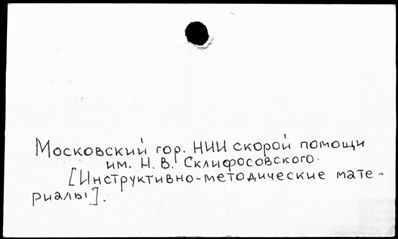 Московский гор. НИИ скорой помощи
им. Н. В. Склифосовского.
[Инструктивно-методические мате-
риалы].